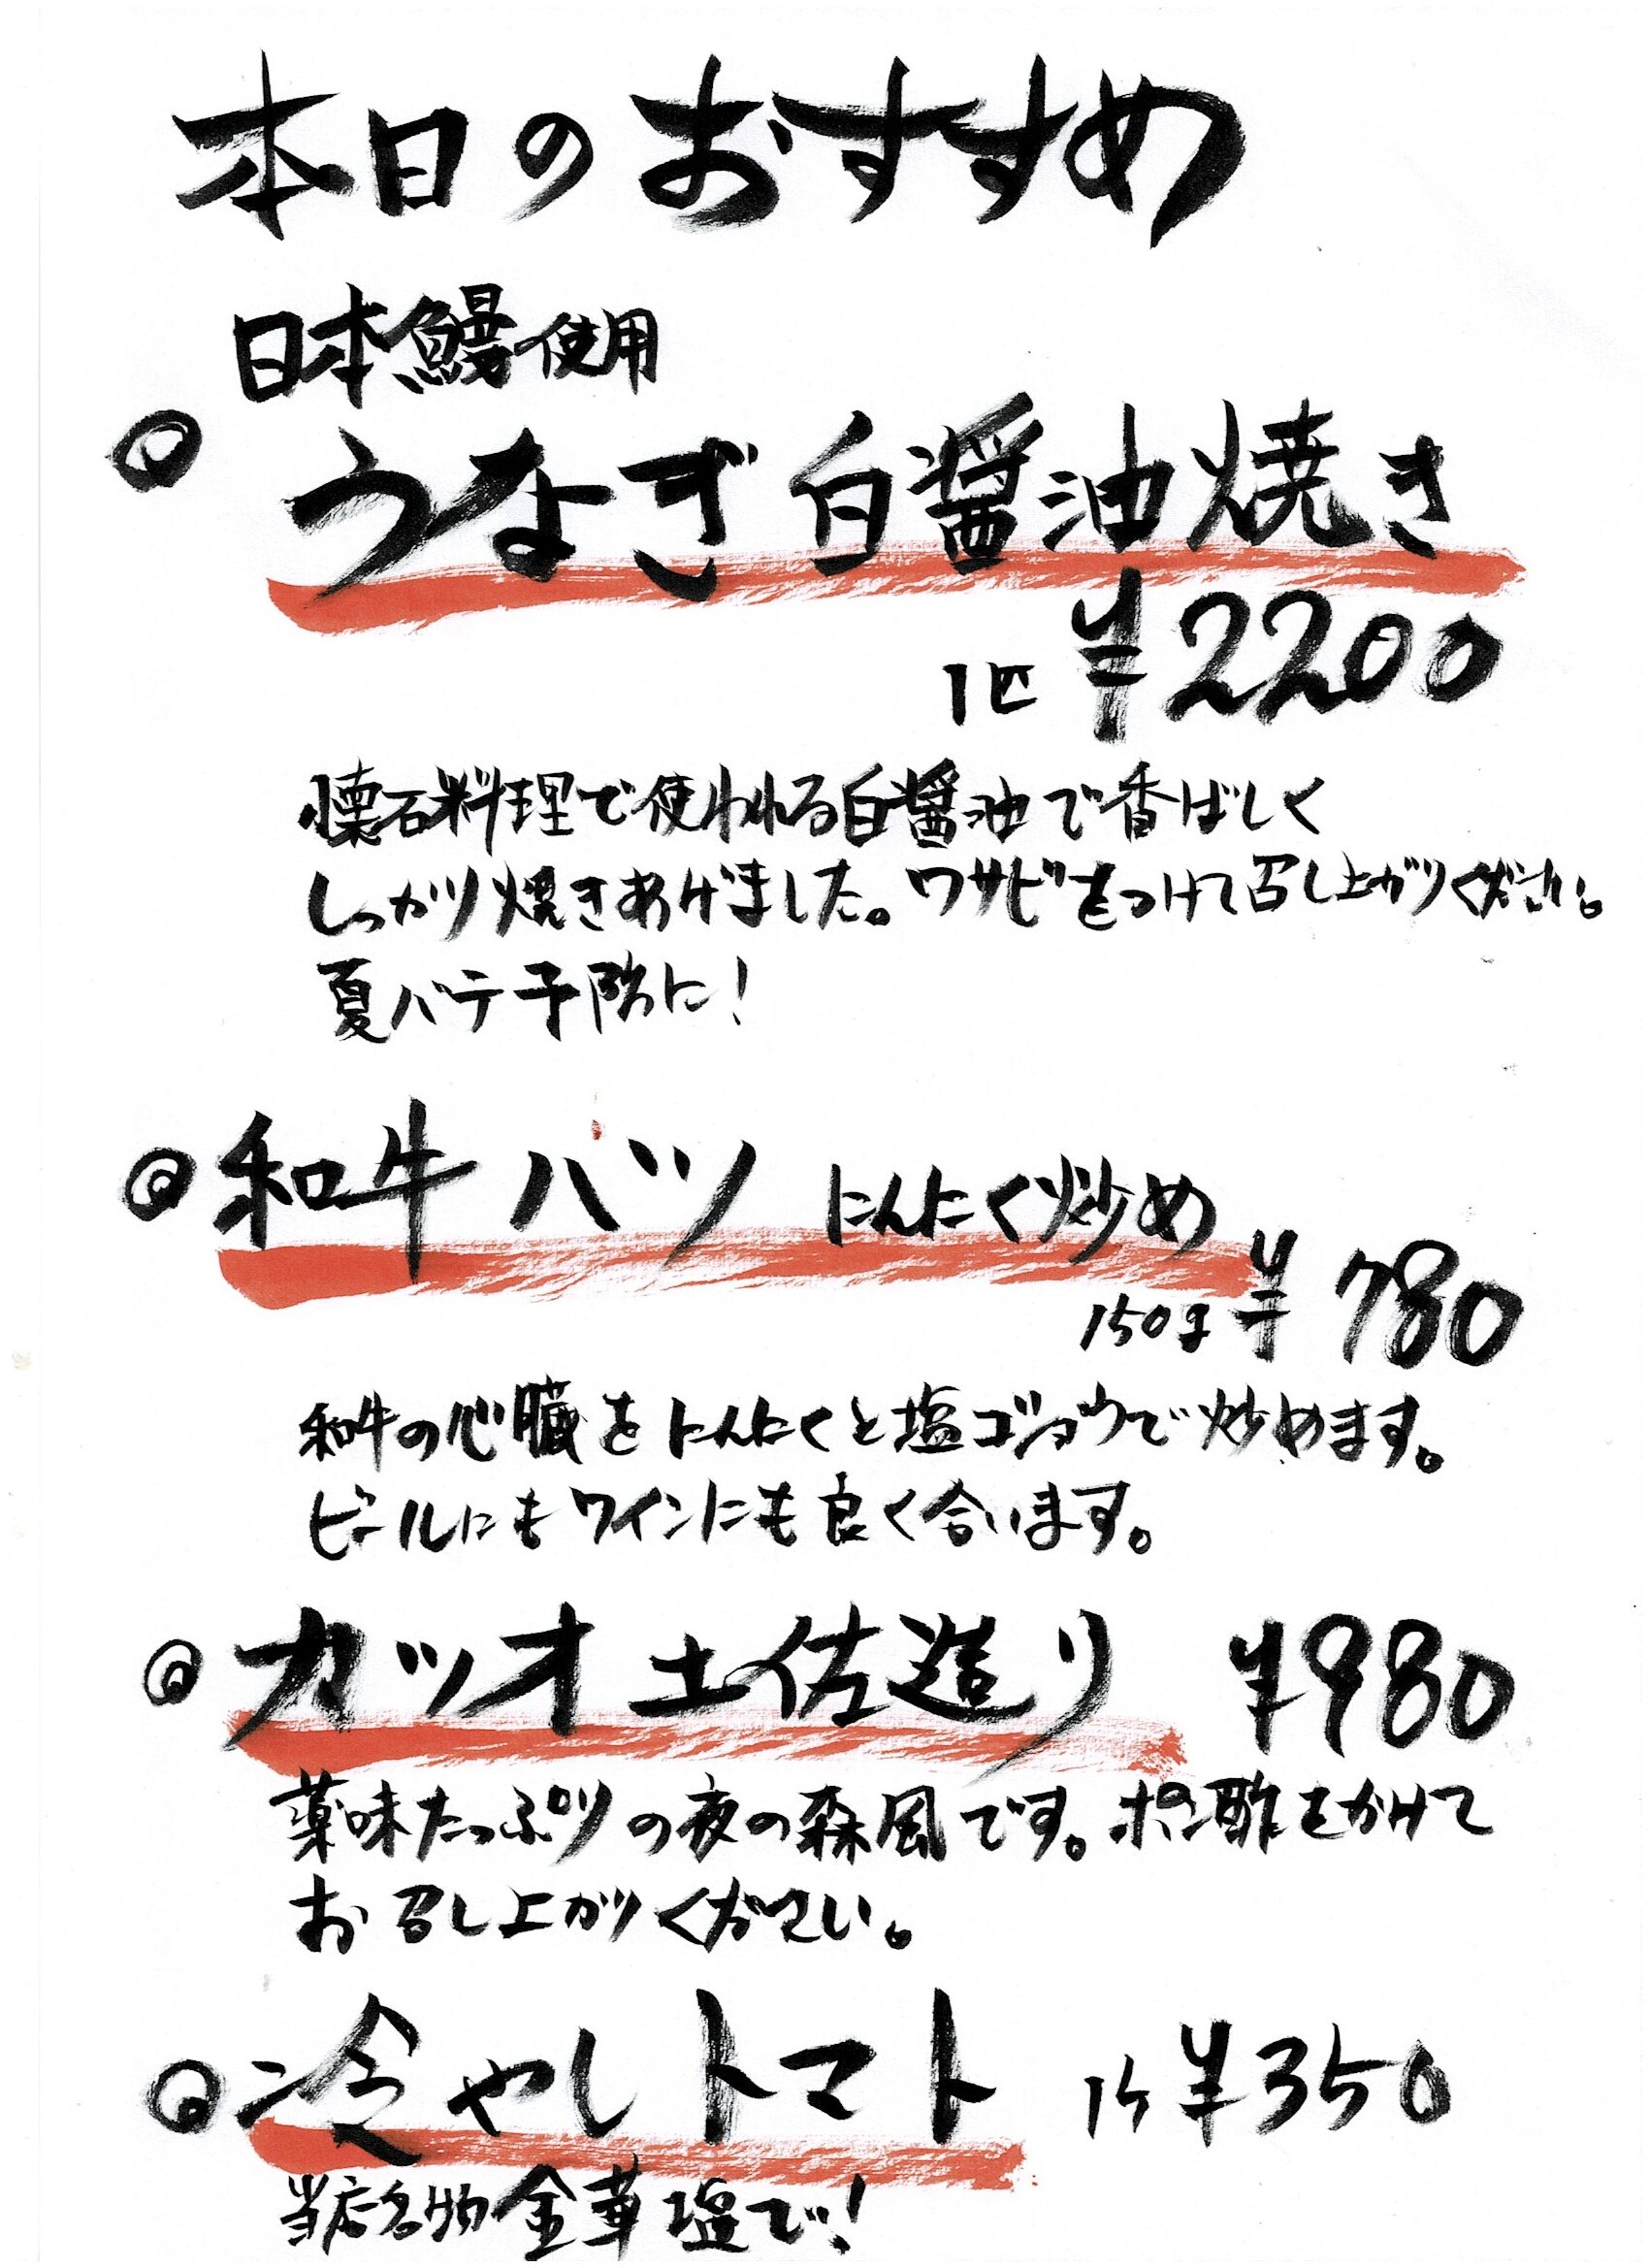 本日のおすすめ
日本鰻使用
◎うなぎ白醤油焼き
1匹 ¥2200
懐石料理で使われる白醤油で香ばしく
しっかり焼きあげました。ワサビをつけて召し上がりください。
夏バテ予防に!
◎和牛ハツ にんにく炒め
150g ¥780
和牛の心臓をにんにくと塩ゴショウで炒めます。
ビールにもワインにも良く合います。
◎カツオ土佐造り ¥980
薬味たっぷりの夜の森風です。ポン酢をかけて
お召し上がりください。
◎冷やしトマト 1ケ ¥350
当店名物金華塩で!